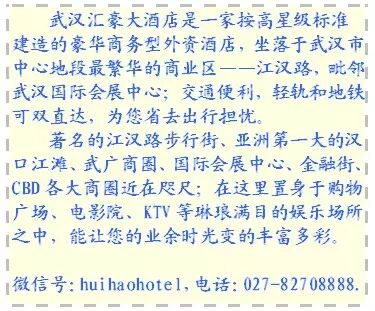 武汉汇豪大酒店是一家按高星级标准
建造的豪华商务型外资酒店，坐落于武汉市
中心地段最繁华的商业区——江汉路，毗邻
武汉国际会展中心；交通便利，轻轨和地铁
可双直达，为您省去出行担忧。
著名的江汉路步行街、亚洲第一大的汉
口江滩、武广商圈、国际会展中心、金融街、
CBD各大商圈近在咫尺；在这里置身于购物
广场、电影院、KTV等琳琅满目的娱乐场所
之中，能让您的业余时光变的丰富多彩。
微信号:huihaohotel,电话:027-82708888.